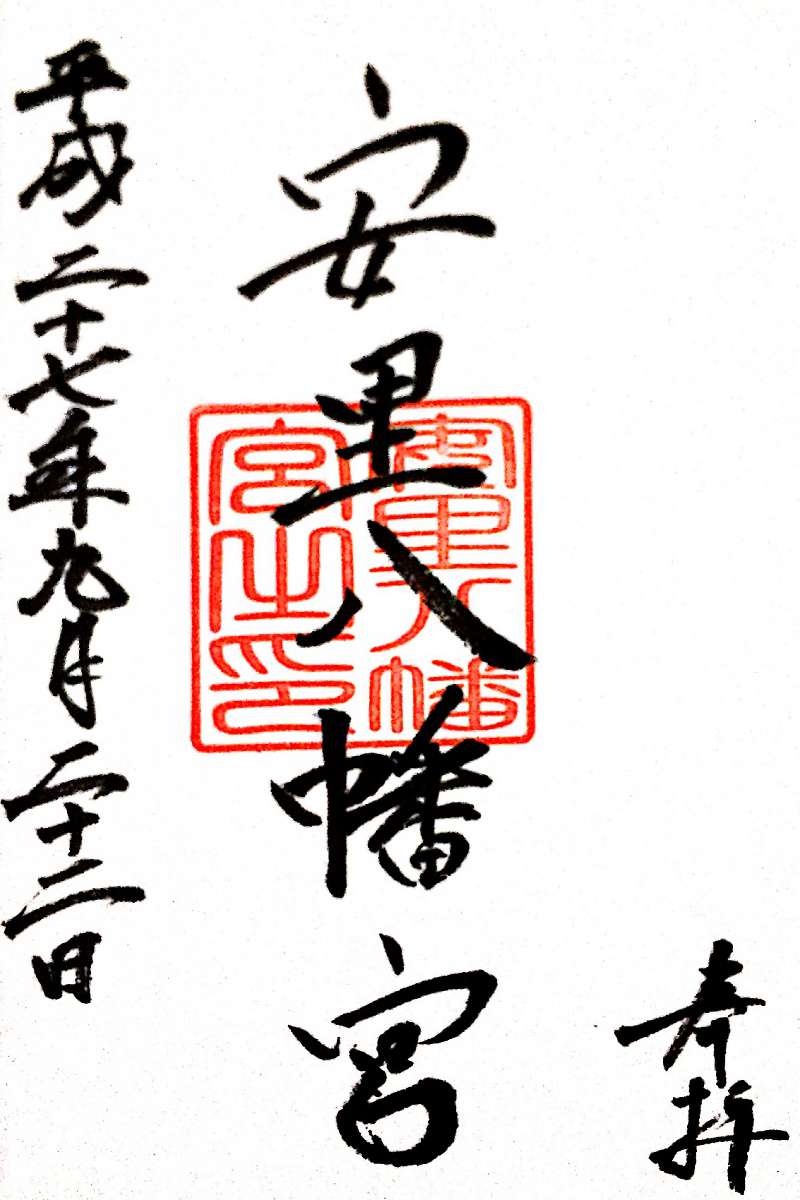 奉拝
安里八幡宮
安里八幡宮之印
平成二十七年九月二十二日